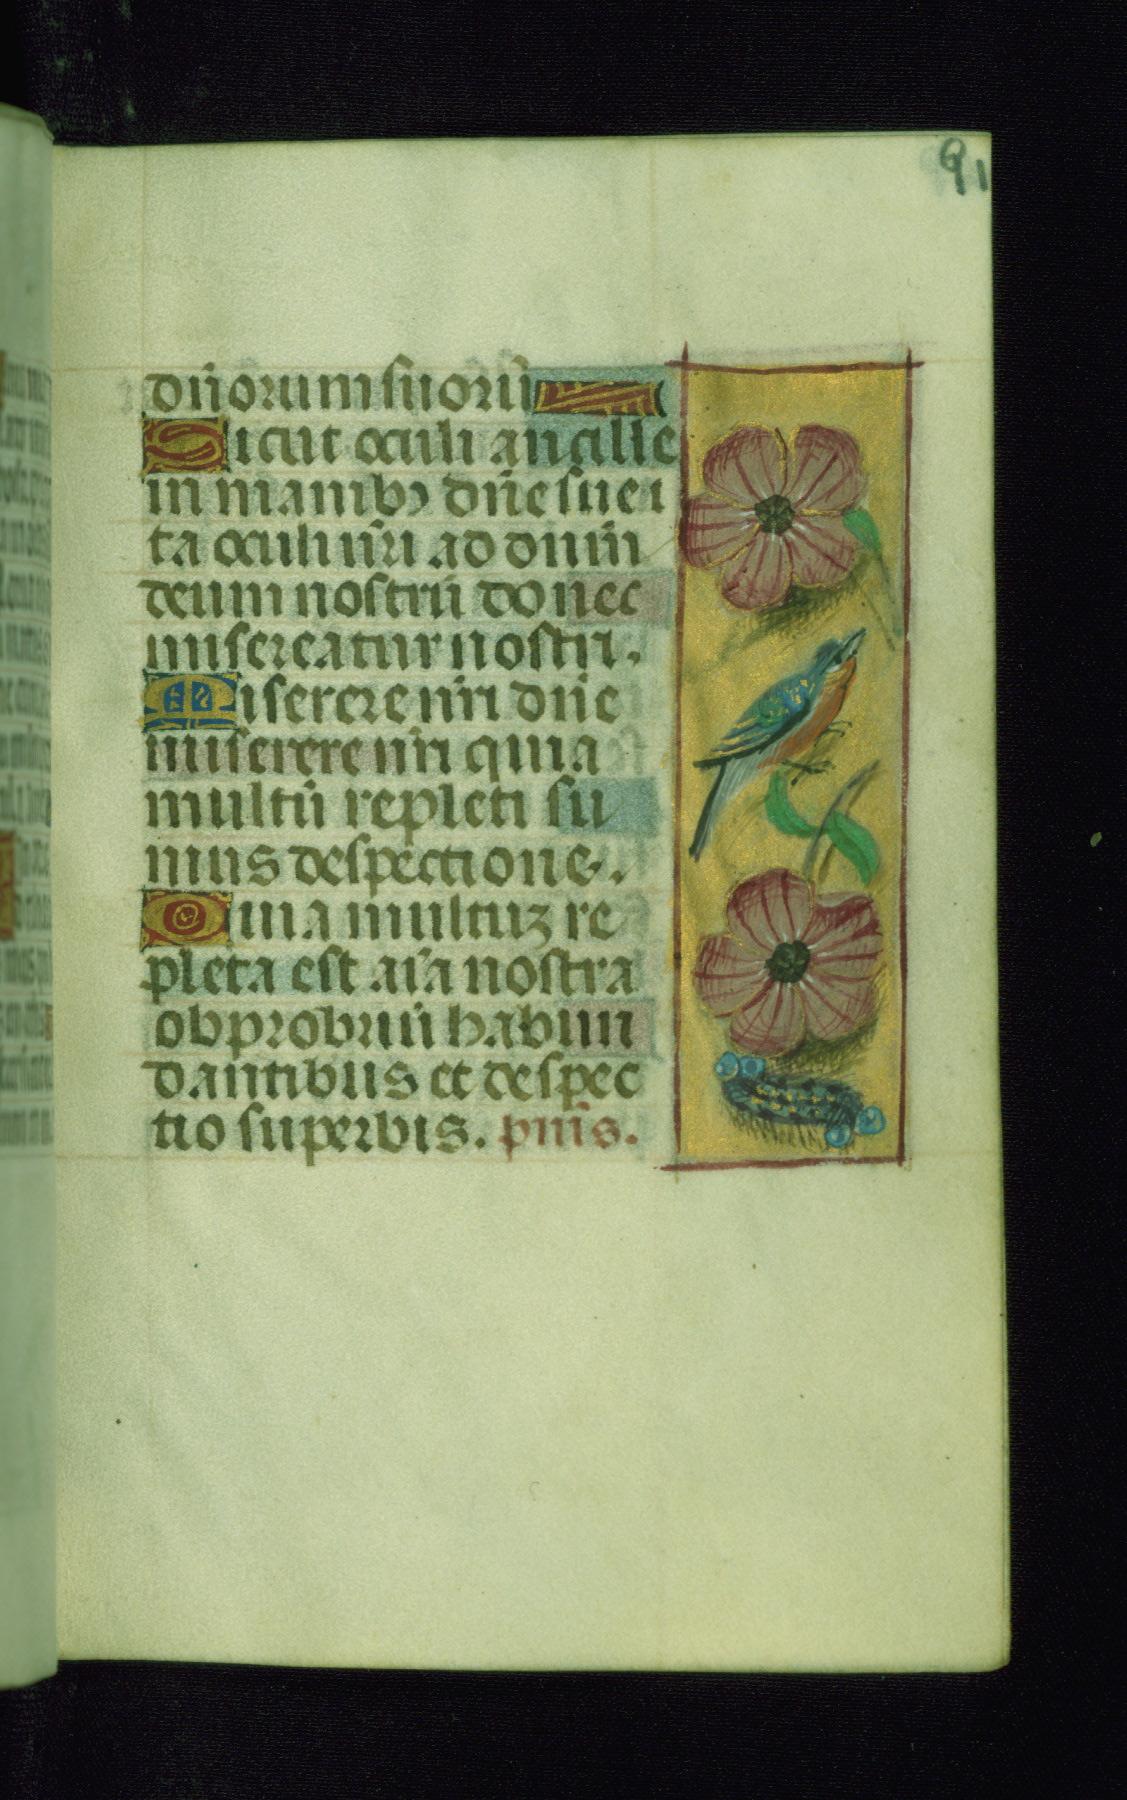 91
dn̄orum suorū
Sicut oculi ancille
in manibꝰ dn̄e sue i
ta oculi nr̄i ad dnm̄
deum nostrū donec
misereatur nostri.
Miserere nr̄i dn̄e
miserere nr̄i quia
multū repleti su
mus despectione.
Quia multuz re
pleta est aīa nostra
obprobriū habun
dantibus et despec
tio superbis. pm̄s.